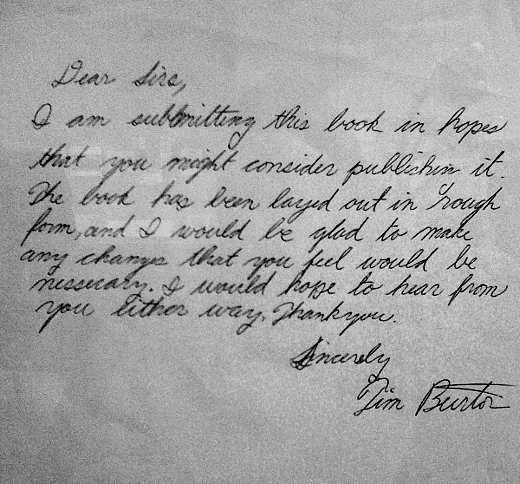 Dear Sirs,
I am submitting this book in hopes
that you might consider publishin it.
The book has been layed out in rough
form, and I would be glad to make
any changes that you feel would be
nessecary. I would hope to hear from
you Either way. Thankyou.
Sincerely
Tim Burton